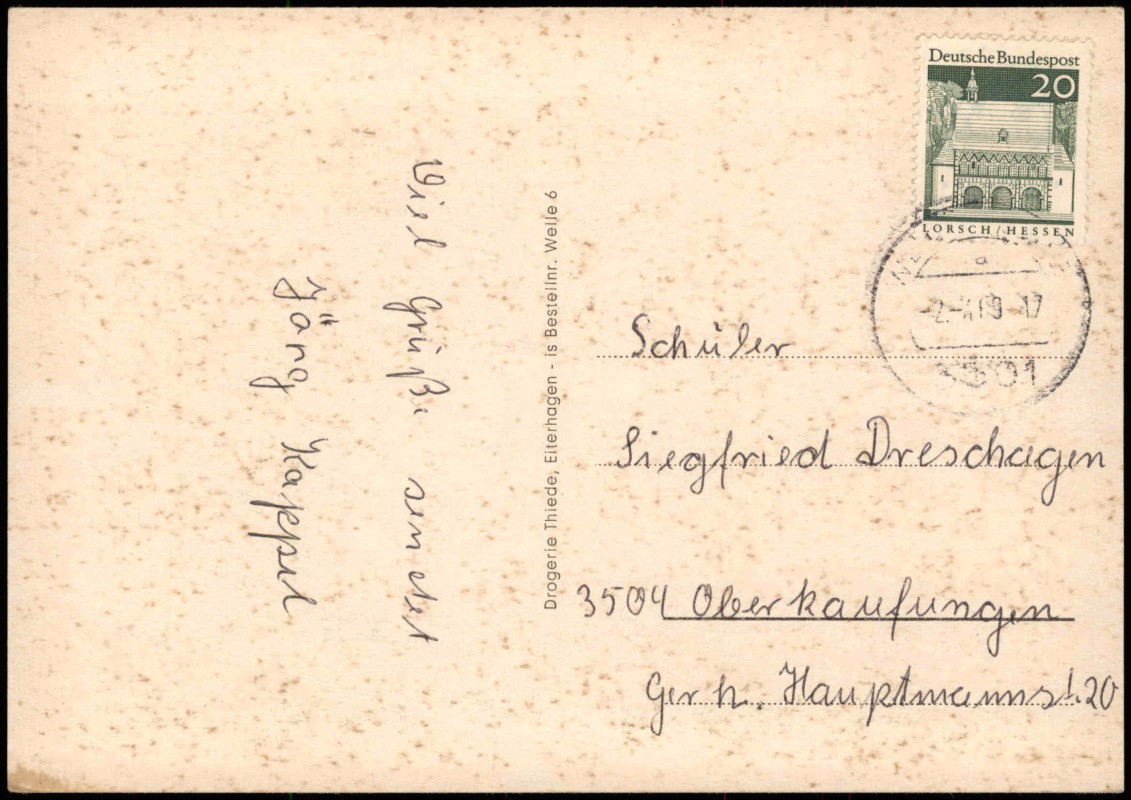 Deutsche Bundespost
20
LORSCH/HESSEN
-2.-4.69-17
3501
Viel Grüße sendet
Jörg Kappel
Drogerie Thiede, Eiterhagen - is Bestellnr. Welle 6
Schüler
Siegfried Dreschagen
3504 Oberkaufungen
Gerh. Hauptmannst. 20